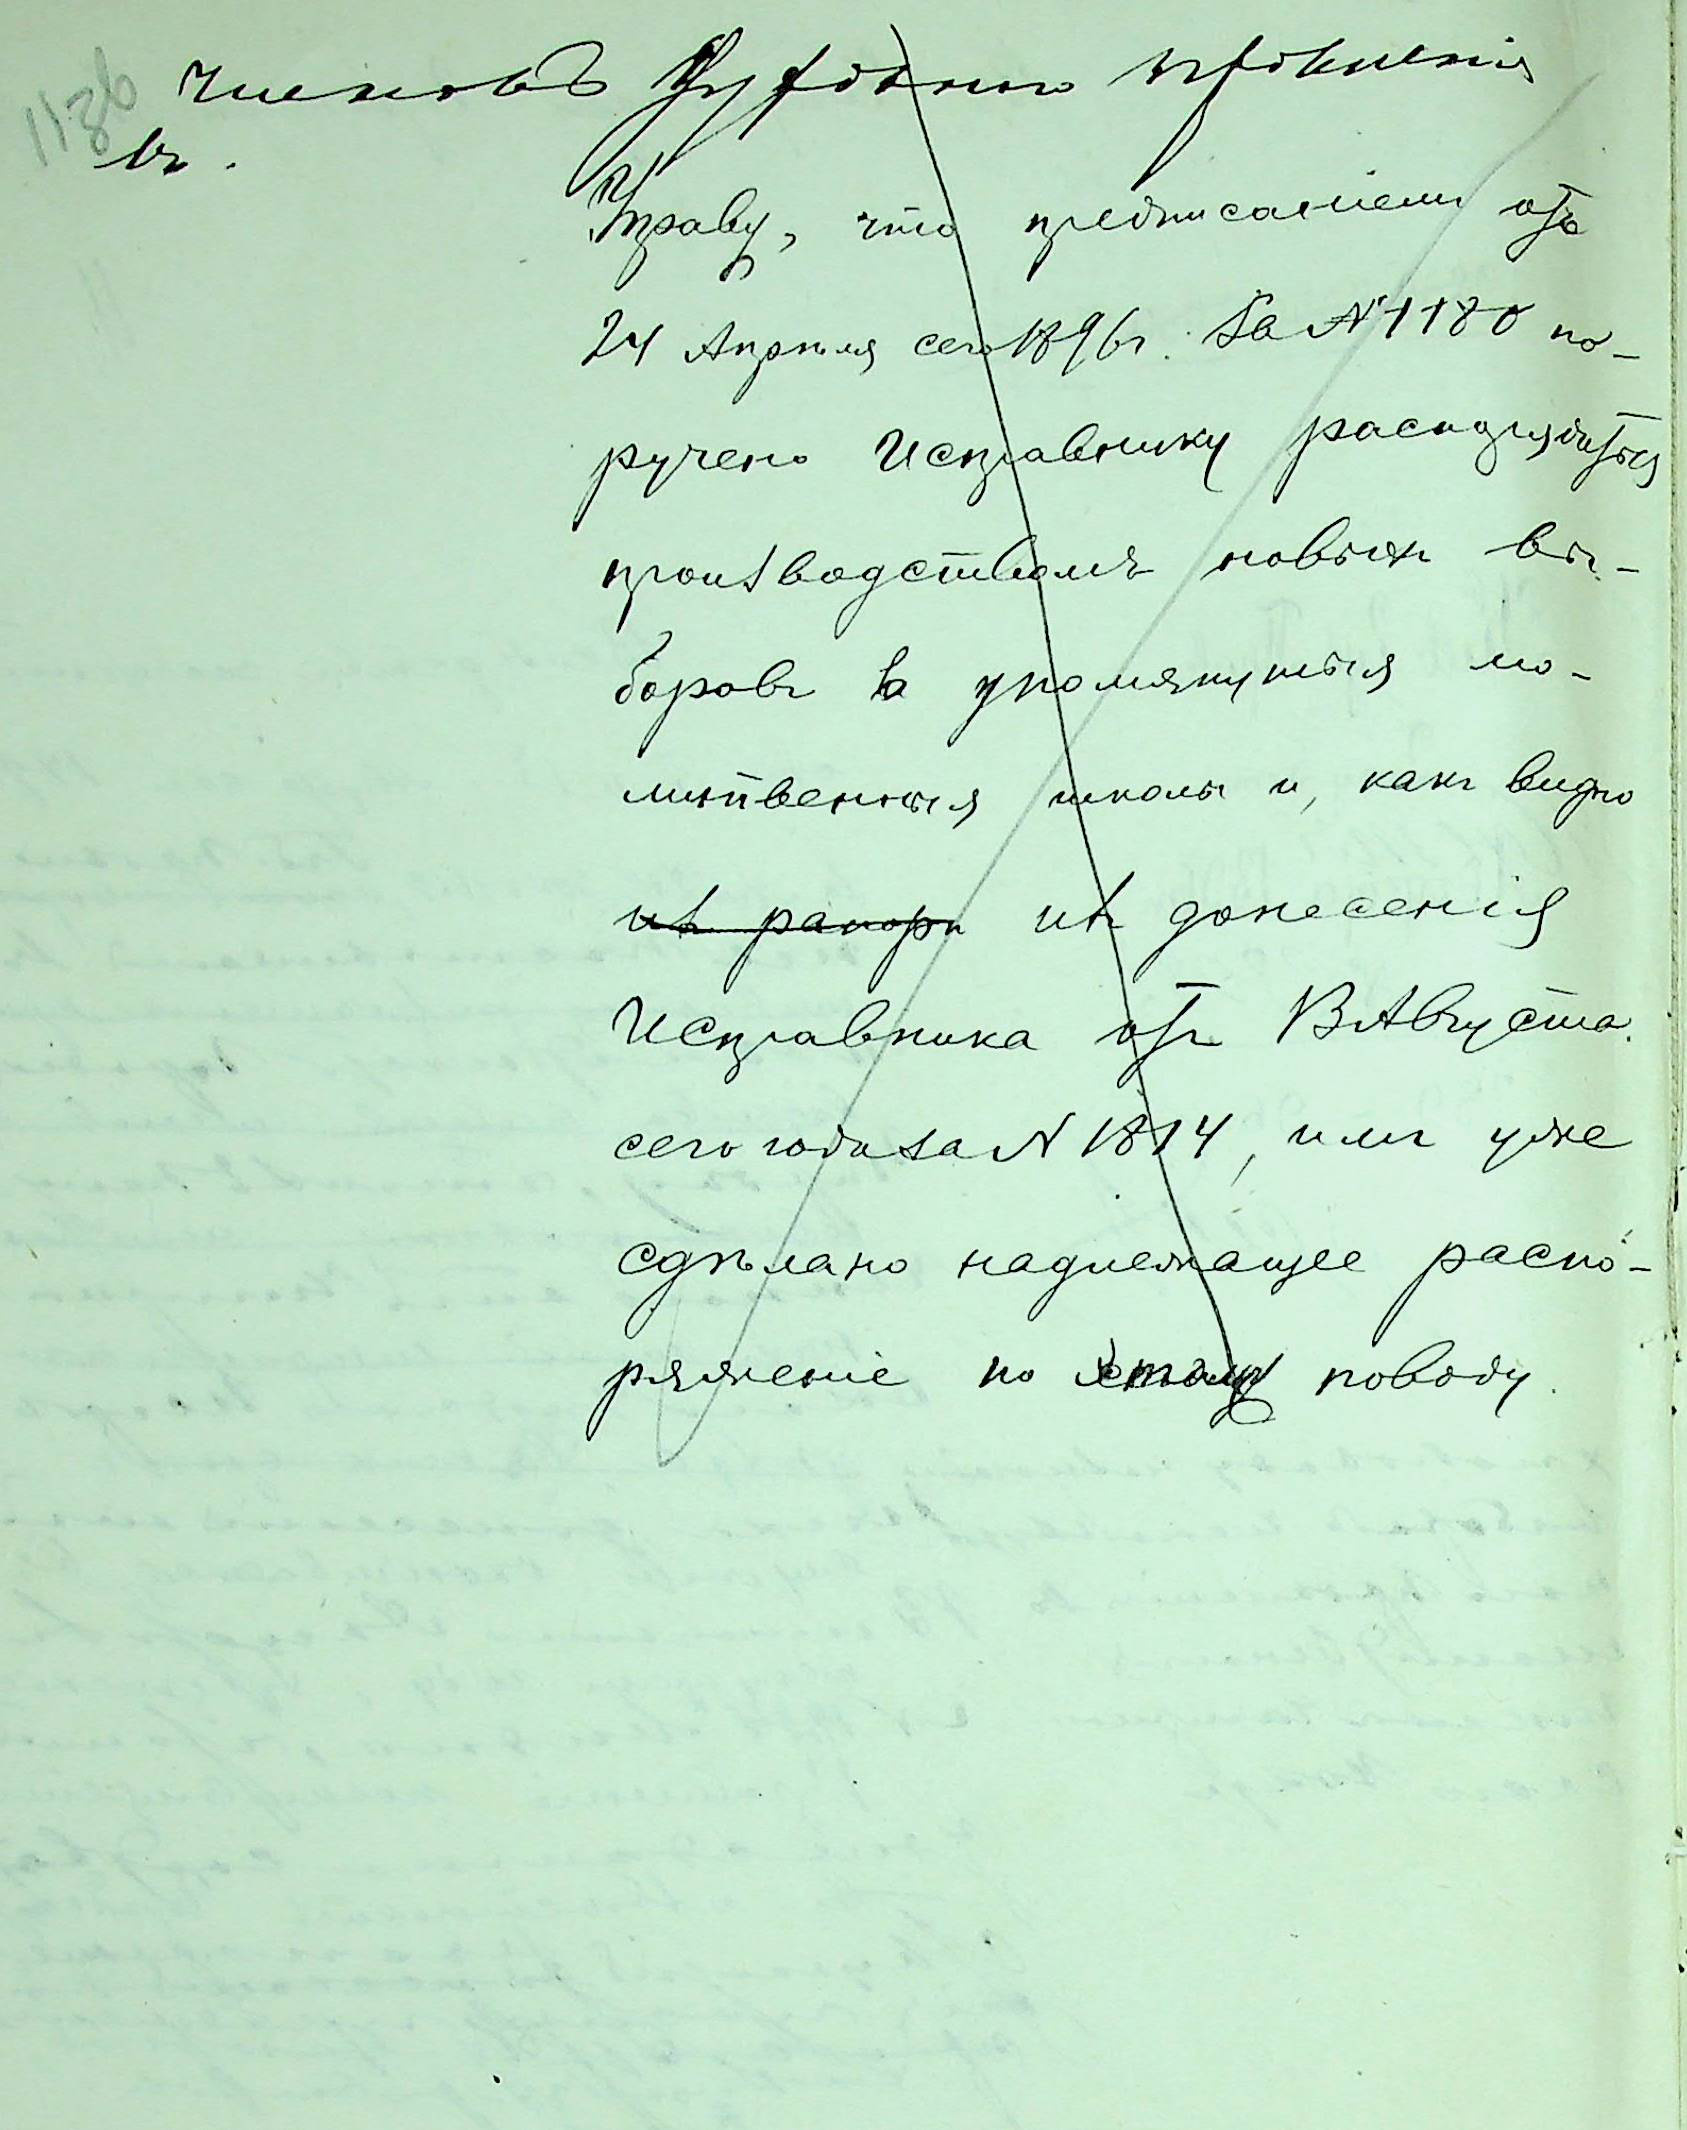 членовъ Духовнаго правленія
въ.
Управу, что предписаніемъ отъ
24 Апрѣля сего 1896 г. за № 1180 по-
ручено Исправнику распорядиться
производствомъ новыхъ вы-
боровъ въ упомянутыя мо-
литвенныя школы и, какъ видно
изъ рапор изъ донесенія
Исправника отъ 13 Августа
сего года за № 1814, имъ уже
сдѣлано надлежащее распо-
ряженіе по этому поводу.